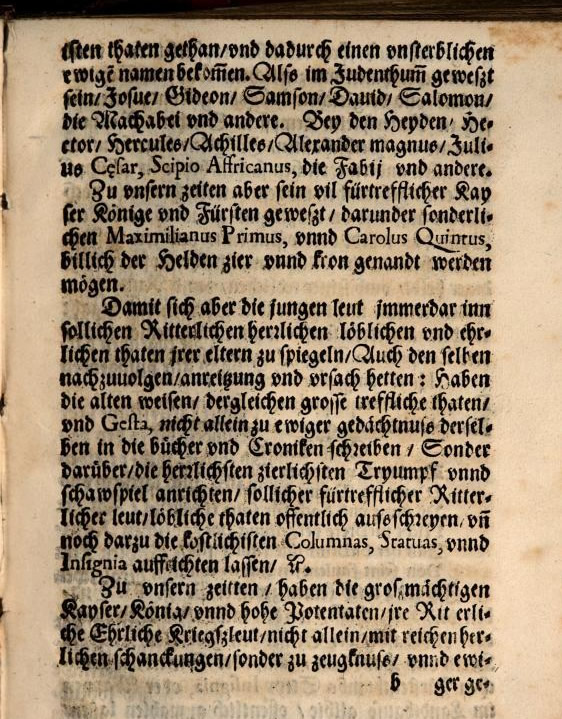 isten thaten gethan/vnd dadurch einen vnsterblichen
ewigē namen bekom̄en. Also im Judenthum̄ geweszt
sein/ Josue/ Gideon/ Samson/ Dauid/ Salomon/
die Machabei vnd andere. Bey den Heyden/ He-
ctor/ Hercules/Achilles/Alexander magnus/ Juli-
us Cęsar, Scipio Affricanus, die Fabij vnd andere.
Zu vnsern zeiten aber sein vil fürtrefflicher Kay
ser Könige vnd Fürsten geweszt/ darunder sonderli-
chen Maximilianus Primus, vnnd Carolus Quintus,
billich der Helden zier vnnd kron genandt werden
mögen.
Damit sich aber die jungen leut jmmerdar inn
sollichen Ritterlichen herrlichen löblichen vnd ehr-
lichen thaten jrer eltern zu spiegeln/Auch den selben
nachzuuolgen/anreitzung vnd vrsach hetten: Haben
die alten weisen/ dergleichen grosse treffliche thaten/
vnd Gesta, nicht allein zu ewiger gedächtnuss dersel-
ben in die bücher vnd Croniken schreiben/ Sonder
darüber/die herrlichsten zierlichsten Tryumpf vnnd
schawspiel anrichten/ sollicher fürtrefflicher Ritter-
licher leut/löbliche thaten offentlich aussschreyen, vn̄
noch darzu die kostlichisten Columnas, Statuas, vnnd
Insignia auffrichten lassen/ ꝛc.
Zu vnsern zeitten/ haben die grosmächtigen
Kayser/König/ vnnd hohe Potentaten/jre Rit erli-
che Ehrliche Kriegszleut/nicht allein/mit reichen her-
lichen schanckungen/sonder zu zeugknuss/ vnnd ewi-
b ger ge-